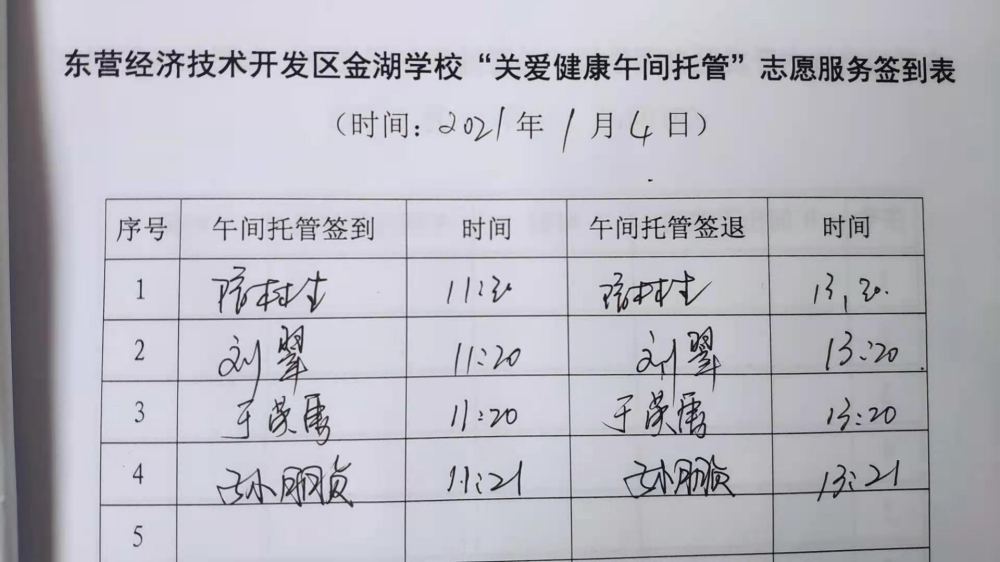 东营经济技术开发区金湖学校“关爱健康午间托管”志愿服务签到表
（时间：2021年1月4日）
序号 午间托管签到 时间 午间托管签退 时间
1 11:20 13:20
2 刘翠 11:20 刘翠 13:20
3 于英 11:20 于英 13:20
4 朋贞 11:21 朋贞 13:21
5